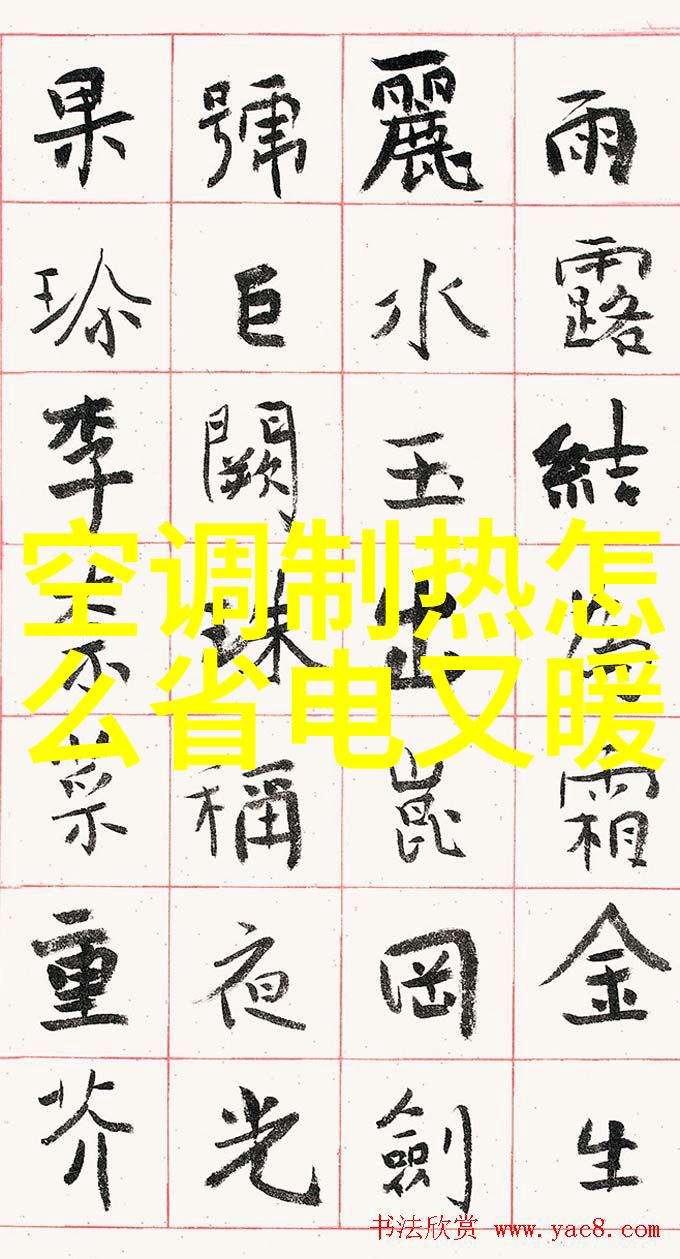 雨露結為霜金生
麗水玉出崑岡劍
號巨闕珠稱夜光
果珎李柰菜重芥
空调制热怎
么省电又暖
书法欣赏 www.yac8.com